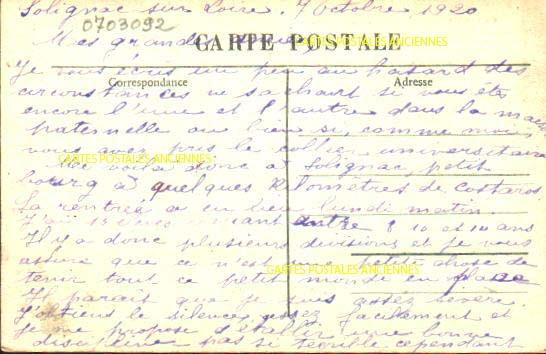 Solignac sur Loire. 7 Octobre 1920
0703092
Mes grandes
CARTE POSTALE
CARTES POSTALES ANCIENNES
Je vous écris un peu au hasard des
Correspondance
Adresse
circonstances ne sachant si vous êtes
encore l'une et l'autre dans la maison
paternelle ou bien si, comme moi,
vous avez pris le collier universitaire
CARTES POSTALES ANCIENNES
Me voilà donc à Solignac, petit
bourg à quelques kilomètres de Costaros
La rentrée a eu lieu lundi matin.
J'ai 15 entre 10 et 14 ans
Il y a donc plusieurs divisions et je vous
assure que ce n'est une petite chose de
CARTES POSTALES ANCIENNES
tenir tout ce petit monde en place
Il paraît que je suis assez sévère.
J'obtiens le silence assez facilement et
je me propose d'établir une bonne
discipline pas si terrible cependant